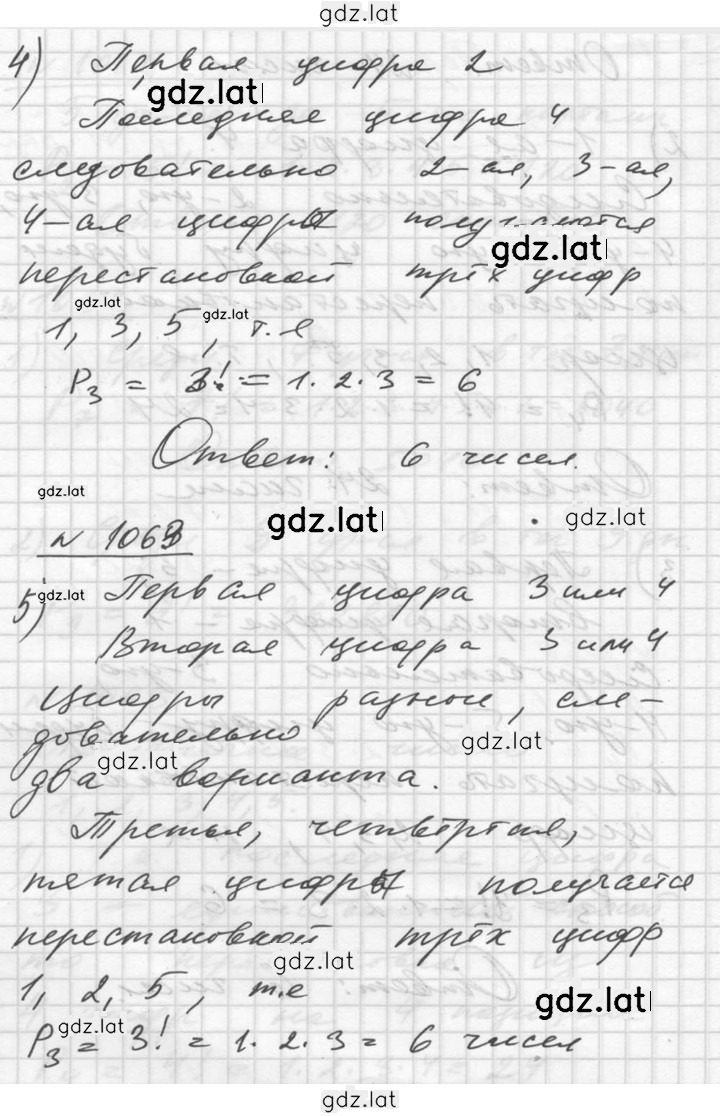 gdz.lat
4) Первая цифра 2
gdz.lat
Последняя цифра 4
следовательно 2-ая, 3-ая,
4-ая цифры получаются
gdz.lat
перестановкой трёх цифр
gdz.lat gdz.lat
1, 3, 5, т.е
P3 = 3! = 1·2·3 = 6
Ответ: 6 чисел.
gdz.lat gdz.lat gdz.lat
N 1063
gdz.lat
5) Первая цифра 3 или 4
Вторая цифра 3 или 4
Цифры разные, сле-
довательно
gdz.lat gdz.lat
два варианта.
Третья, четвёртая,
пятая цифры получается
перестановкой трёх цифр
gdz.lat
1, 2, 5, т.е
gdz.lat
gdz.lat
P3 = 3! = 1·2·3 = 6 чисел
gdz.lat